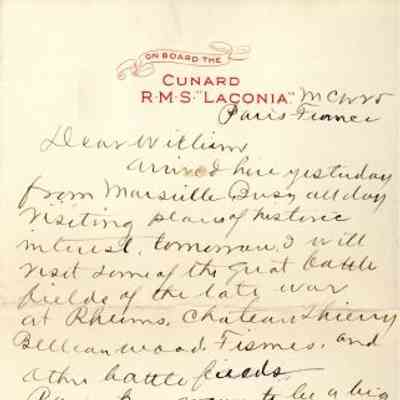 ON BOARD THE
CUNARD
R·M·S·"LACONIA."
Paris France
Dear William
arrived here yesterday
from Marseille Busy all day
visiting places of historic
interest. tomorrow I will
visit some of the great battle
fields of the late war
at Rheims. Chateau Thierry
Belleau wood. Fismes. and
other battle fields
to be a big